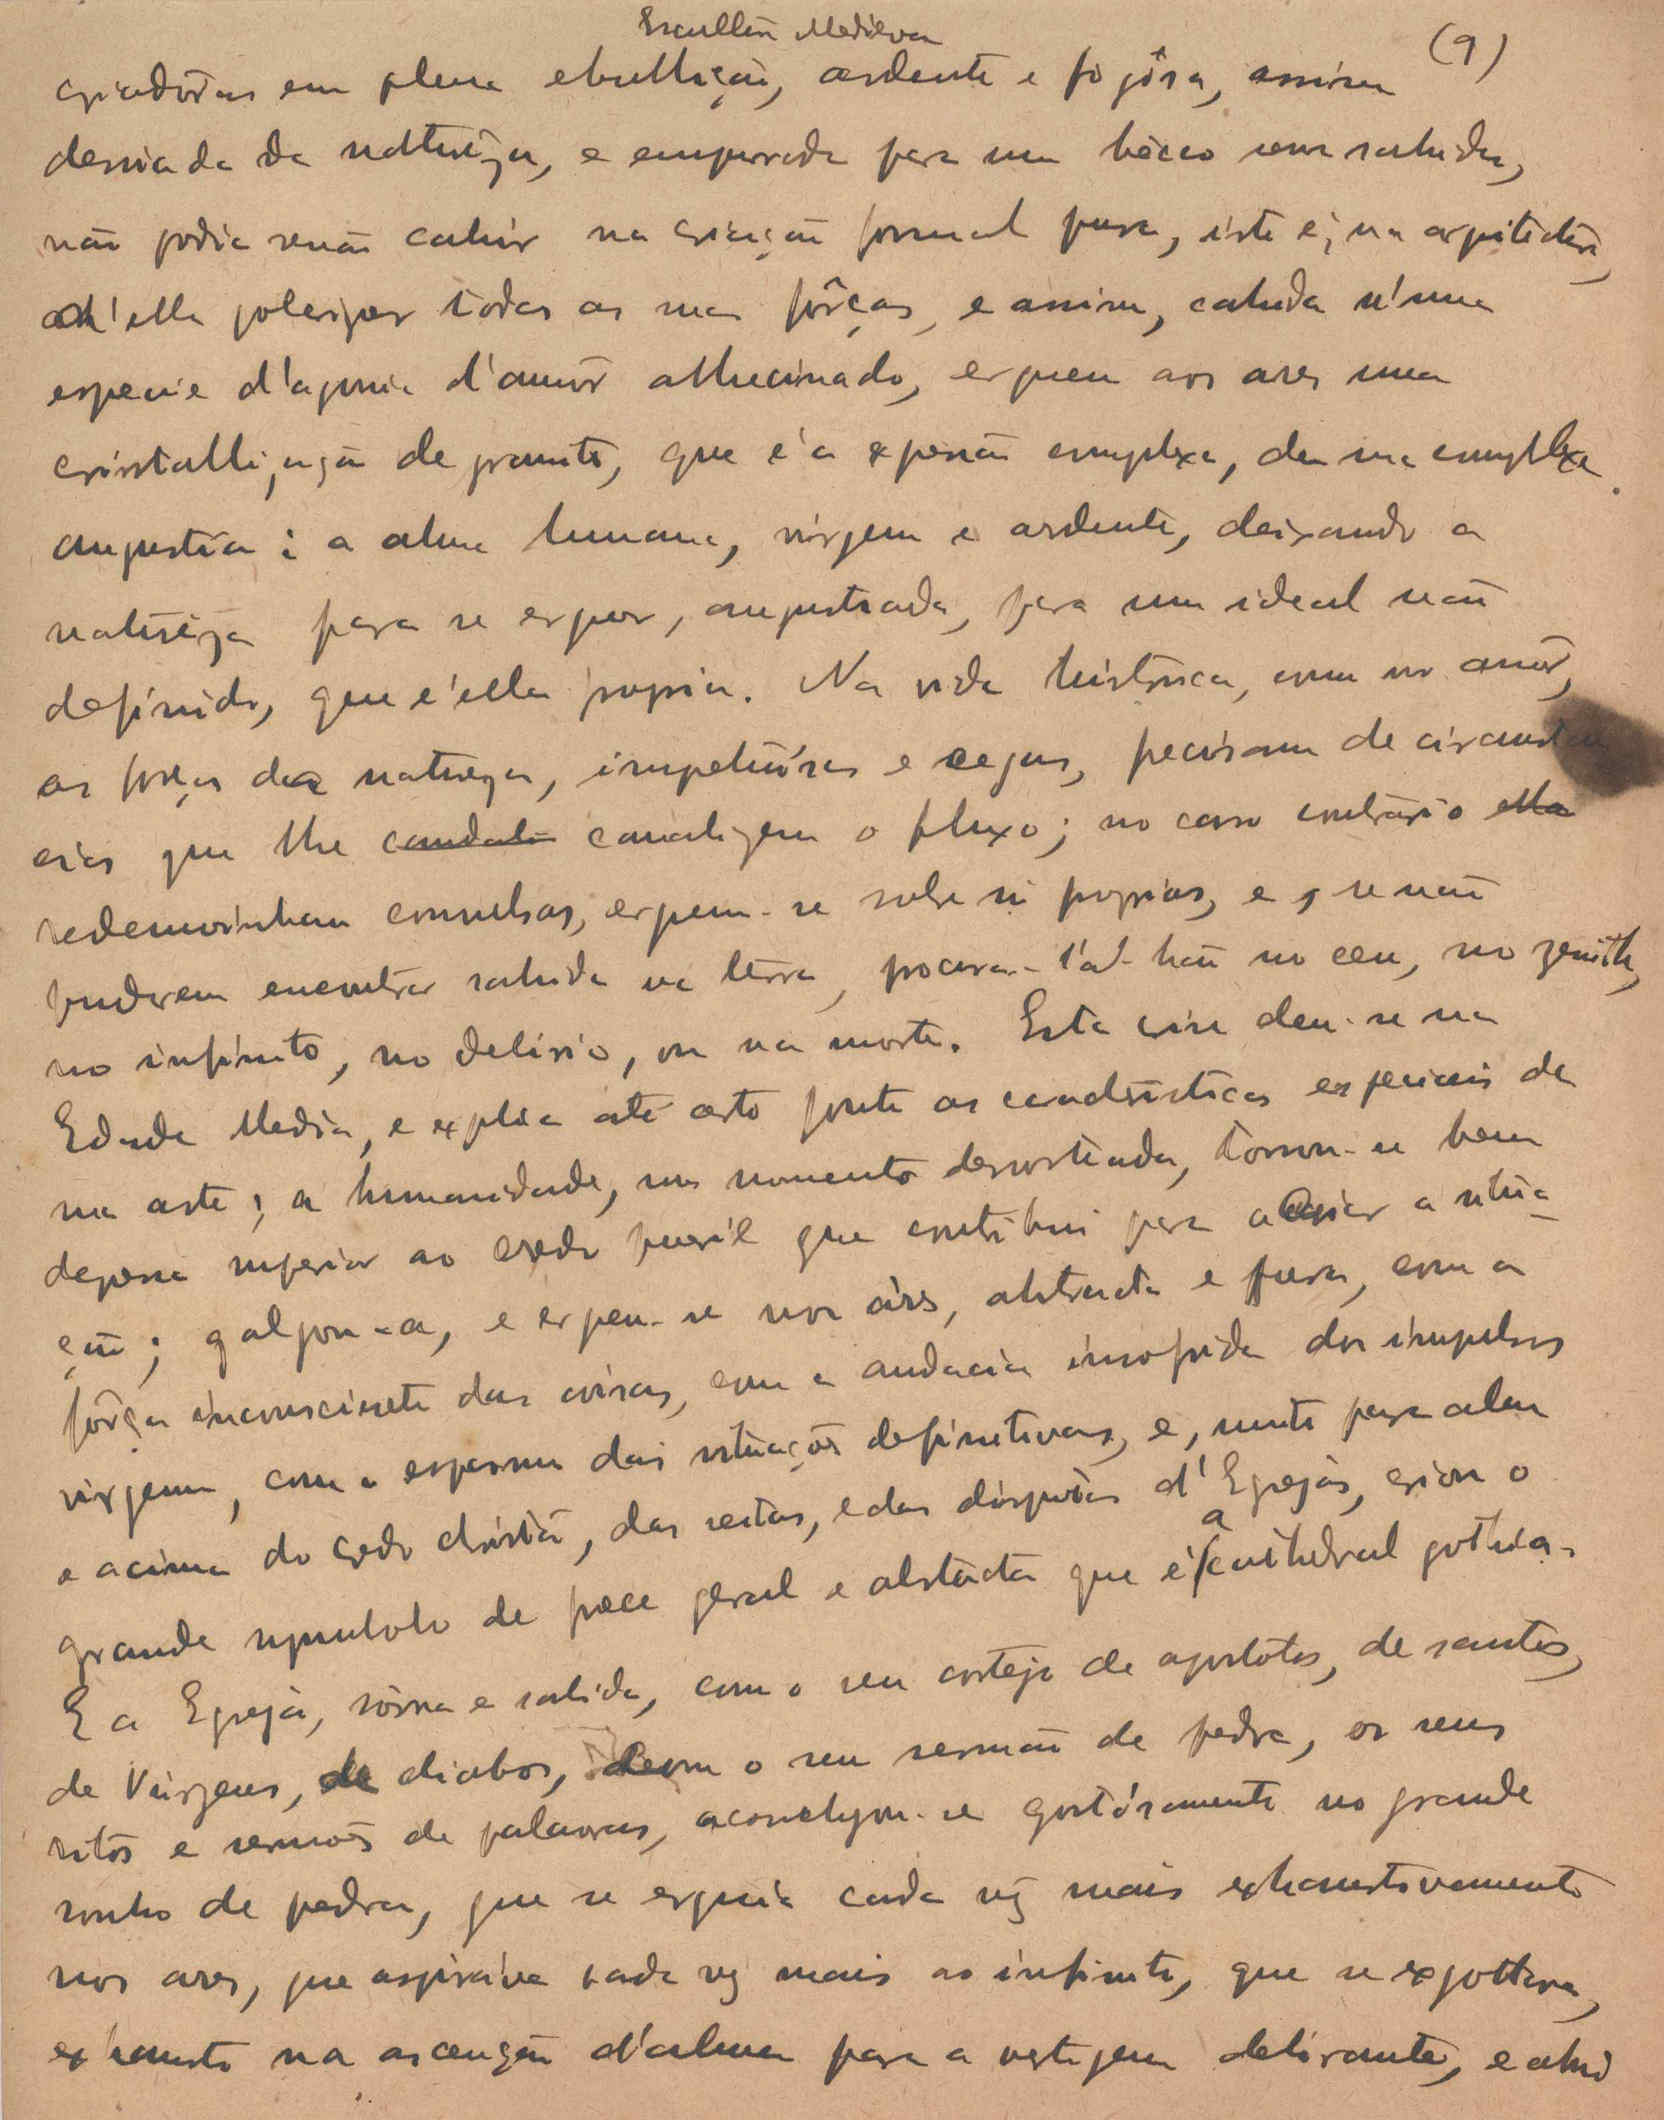 Escultura Medieva
(9)
criadôras em plena ebulliçaõ, ardente e fogôsa, assim
desviada da natureza, e empurrada para um bécco sem sahida,
naõ podia senaõ cahir na criaçaõ formal pura, isto é, na arquitectura,
n'ella polarizar todas as suas fôrças, e assim, cahida n'uma
especie d'agonia d'amôr allucinado, ergueu aos ares uma
cristallizaçaõ de granito, que é a expressaõ complexa, da sua complexa
angustia: a alma humana, virgem e ardente, deixando a
naturêza para se erguer, angustiada, para um ideal naõ
definido, que é ella propria. Na vida histórica, como no amôr,
as forças da natureza, impetuósas e cegas, precisam de circunstan
cias que lhe canalizem o fluxo; no caso contrário
redemoinham convulsas, erguem-se sobre si proprias, e, se naõ
puderem encontrar sahida na terra, procura-l'a-haõ no ceu, no zenith,
no infinito, no delirio, ou na morte. Esta crise deu-se na
Edade Media, e explica até certo ponto as caracteristicas especiais da
sua arte; a humanidade, um momento desnorteada, tornou-se bem
depressa superior ao crédo pueril que contribui para a criar a situa-
çaõ; galgou-a, e ergueu-se nos áres, abstracta e pura, com a
fôrça inconsciente das coisas, com a audacia insofrida dos impulsos
virgens, com o espasmo das situaçoẽs definitivas, e, muito para alem
e acima do credo christaõ, das seitas, e das disputas d'Egrejas, criou o
grande symbolo de prece geral e abstracta que é a cathedral gothica.
E a Egreja, sôrna e sabida, com o seu cortejo de apostolos, de santos,
de Virgens, de diabos, com o seu sermaõ de pedra, os seus
ritos e sermoẽs de palavras, aconchegou-se gostósamente no grande
sonho de pedra, que se erguia cada vez mais exhaustivamente
nos ares, que aspirava cada vez mais ao infinito, que se exgottava,
exhausto na ascençaõ d'alma para a vertigem delirante, e ahi